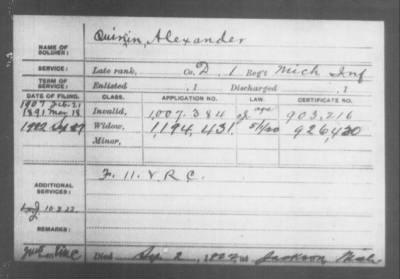 NAME OF SOLDIER: Quinzin, Alexander
SERVICE: Late rank, Co. D, 1 Reg't Mich Inf
TERM OF SERVICE: Enlisted , 1 Discharged , 1
DATE OF FILING. CLASS. APPLICATION NO. LAW. CERTIFICATE NO.
1907 Feb. 21 age
1891 May 18 Invalid, 1,007,384 903,216
1902 Sep 27 Widow, 1,194,431 926,420
Minor,
ADDITIONAL SERVICES: F. 11. V.R.C.
Died Sep 2, Jackson Mich